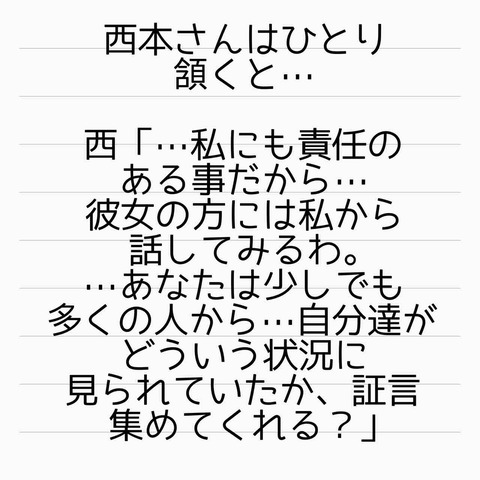 西本さんはひとり
頷くと…
西「…私にも責任の
ある事だから…
彼女の方には私から
話してみるわ。
…あなたは少しでも
多くの人から…自分達が
どういう状況に
見られていたか、証言
集めてくれる？」